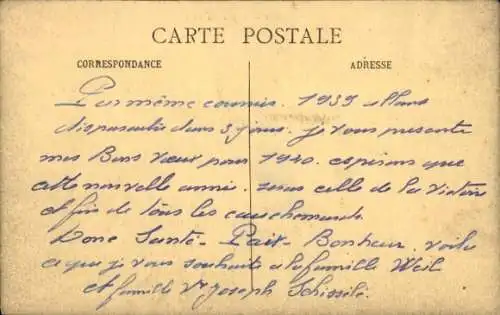 CARTE POSTALE
CORRESPONDANCE
ADRESSE
Par même courrier. 1939 allant
disparaitre dans 3 jours. je vous présente
mes Bons vœux pour 1940. espérons que
cette nouvelle année. sera celle de la victoire
et fin de tous les cauchemards
Donc Santé - Paix - Bonheur. voilà
ce que je vous souhaite à la famille Weil
et famille Vve Joseph